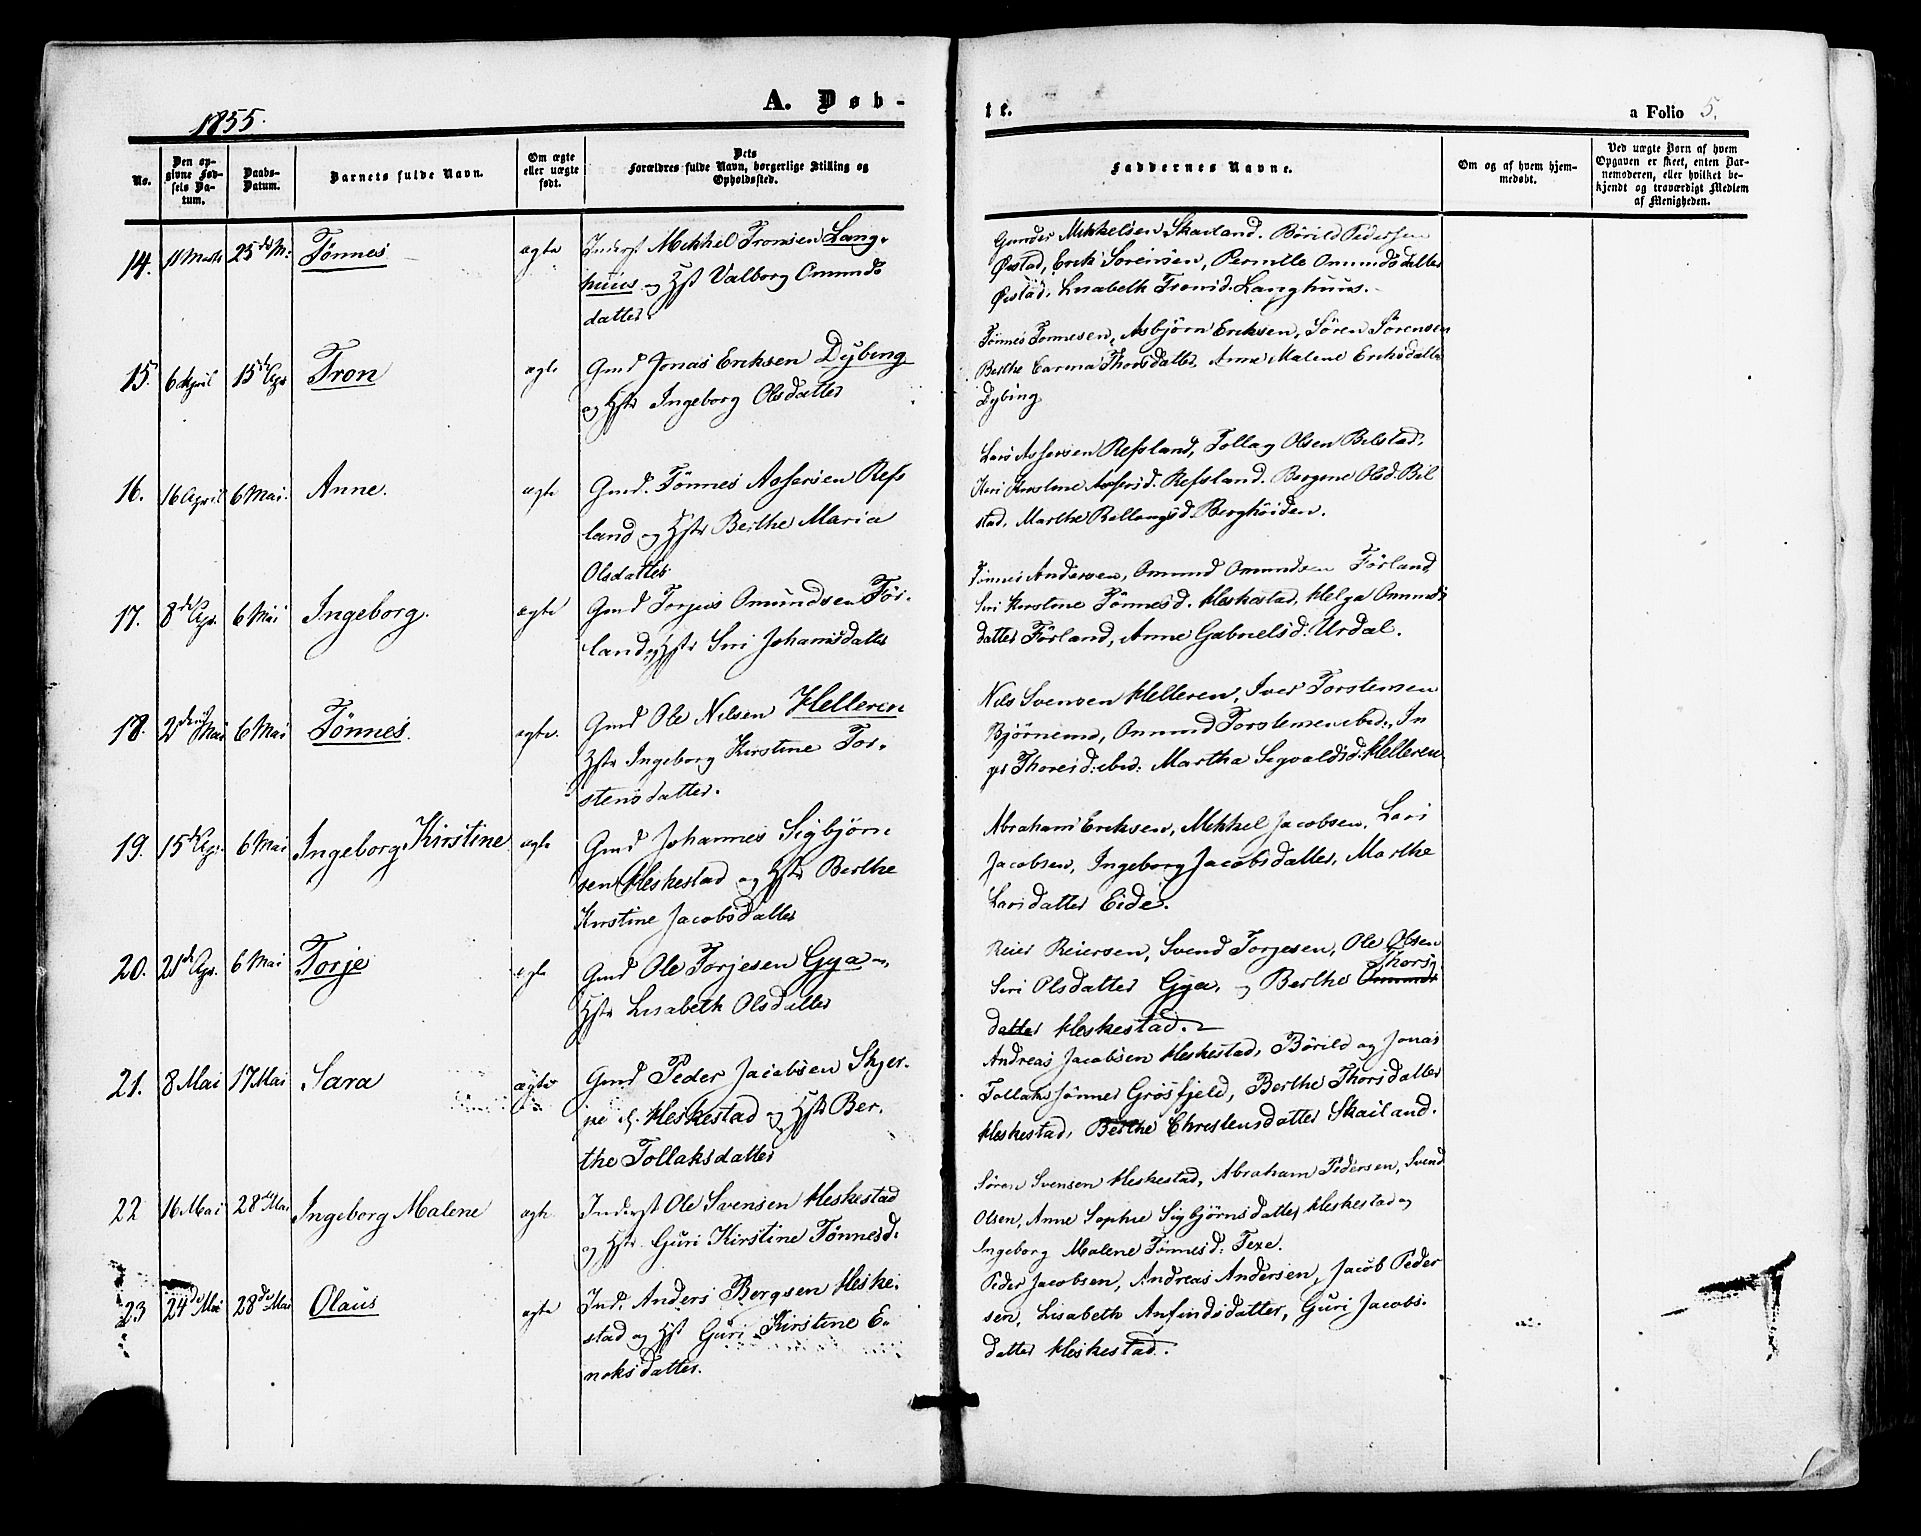 1855.
A. Døb-
te.
a Folio 5.
No.
Den opgivne Fødsels Datum.
Daabs-Datum.
Barnets fulde Navn.
Om ægte eller uægte født.
Dets Forældres fulde Navn, borgerlige Stilling og Opholdssted.
Faddernes Navne.
Om og af hvem hjemmedøbt.
Ved uægte Børn af hvem Opgaven er skeet, enten Barnemoderen, eller hvilket bekjendt og troværdigt Medlem af Menigheden.
14. 11 Marts 25de M: Tønnes ægte Inderst Mekkel Tronsen Lang-
huus og Hst Valborg Omunds
datter.
Gunder Mekkelsen Skailand. Børild Pedersen
Øvstad, Erik Sørensen, Pernille Omundsdatter
Øvstad. Lisabeth Tronsd. Langhuus.
15. 6 April 15de Apr Tron ægte Gmd Jonas Eriksen Dybing
og Hstr Ingeborg Olsdatter
Tønnes Tonnesen, Asbjørn Eriksen, Sören Sörensen
Berthe Carina Thorsdatter, Anne Malene Eriksdatter
Dybing
16. 16 April 6 Mai. Anne. ægte Gmd. Tönnes Assersen Refs
land og Hstr Berthe Maria
Olsdatter
Lars Assersen Refsland, Tollag Olsen Bilstad,
Kirstine Assersd. Refsland. Bergine Olsd. Bil
stad, Marthe Rellaugsd. Berghöiden.
17. 8de Apr. 6 Mai Ingeborg. ægte Gmd Torjus Omundsen För-
land, og Hstr Siri Johannsdatter
Tönnes Andersen, Omund Omundsen Förland,
Siri Kirstine Tönnesd. Heskestad, Helga Omunds
datter Förland, Anne Gabrielsd: Urdal.
18. 2den Mai 6 Mai Tønnes. ægte. Gmd Ole Nilsen Helleren
Hstr Ingeborg Kirstine Tor-
stensdatter.
Nils Svensen Helleren, Iver Torstensen
Bjørnemo, Omund Torstensen ibid., In
ger Thoresd: ibid: Martha Sigvaldsd: Helleren
19. 15de Apr. 6 Mai Ingeborg Kirstine ægte Gmd Johannes Sigbjörn
sen Heskestad og Hstr Berthe
Kirstine Jacobsdatter
Abraham Eriksen, Mekkel Jacobsen, Lars
Jacobsen, Ingeborg Jacobsdatter, Marthe
Larsdatter Eide.
20. 21de Apr. 6 Mai Torje ægte Gmd Ole Torjesen Gya
Hstr Lisabeth Olsdatter
Reier Reiersen, Svend Torjesen, Ole Olsen
Siri Olsdatter Gya, og Berthe Omunds Thors
datter Heskestad.
21. 8 Mai 17 Mai Sara ægte Gmd Peder Jacobsen Skjer-
pe Heskestad og Hstr Ber-
the Tollaksdatter
Andreas Jacobsen Heskestad, Börild og Jonas
Tollakssönner Grösfjeld, Berthe Thorsdatter
Heskestad, Berthe Christensdatter Skailand.
22 16 Mai 28de Mai Ingeborg Malene ægte Inderst Ole Svensen Heskestad
og Hstr. Guri Kirstine Tönnesd.
Sören Svensen Heskestad, Abraham Pedersen, Svend
Olsen, Anne Sophie Sigbjörnsdatter Heskestad og
Ingeborg Malene Tönnesd: Texe.
23 24de Mai 28de Mai Olaus ægte Ind. Anders Bergsen Heske-
stad og Hst Guri Kirstine E-
noksdatter.
Peder Jacobsen, Andreas Andersen, Jacob Peder
sen, Lisabeth Anfindsdatter, Guri Jacobs-
datter Heskestad.